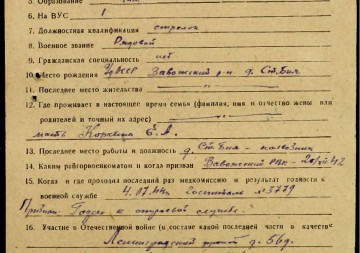 5. Образование
6. На ВУС 1
7. Должностная квалификация стрелок
8. Военное звание Рядовой
9. Гражданская специальность нет
10. Место рождения УАССР Завожский р-н д. Ст.Бия
11. Последнее место жительства
12. Где проживает в настоящее время семья (фамилия, имя и отчество жены или
родителей и точный их адрес)
мать Е.А.
13. Последнее место работы и должность д. Ст.Бия - колхозник
14. Каким райгорвоенкоматом и когда призван Вавожский РВК - 42
15. Когда и где проходил последний раз медкомиссию и результат годности к
военной службе 4.07.44г госпитале №3779
Признан: Годен к строевой службе.
16. Участие в Отечественной войне (в составе какой последней части и в качестве
Ленинградский фронт